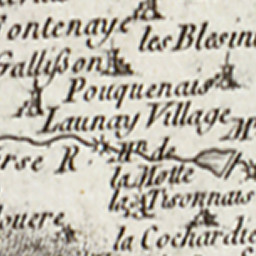 Fontenaye
les Blesin
Gallisson
Pouquenais
Launay Village
Mn
erse R.
Mn de
la Motte
la Tisonnais
louere
la Cochardie